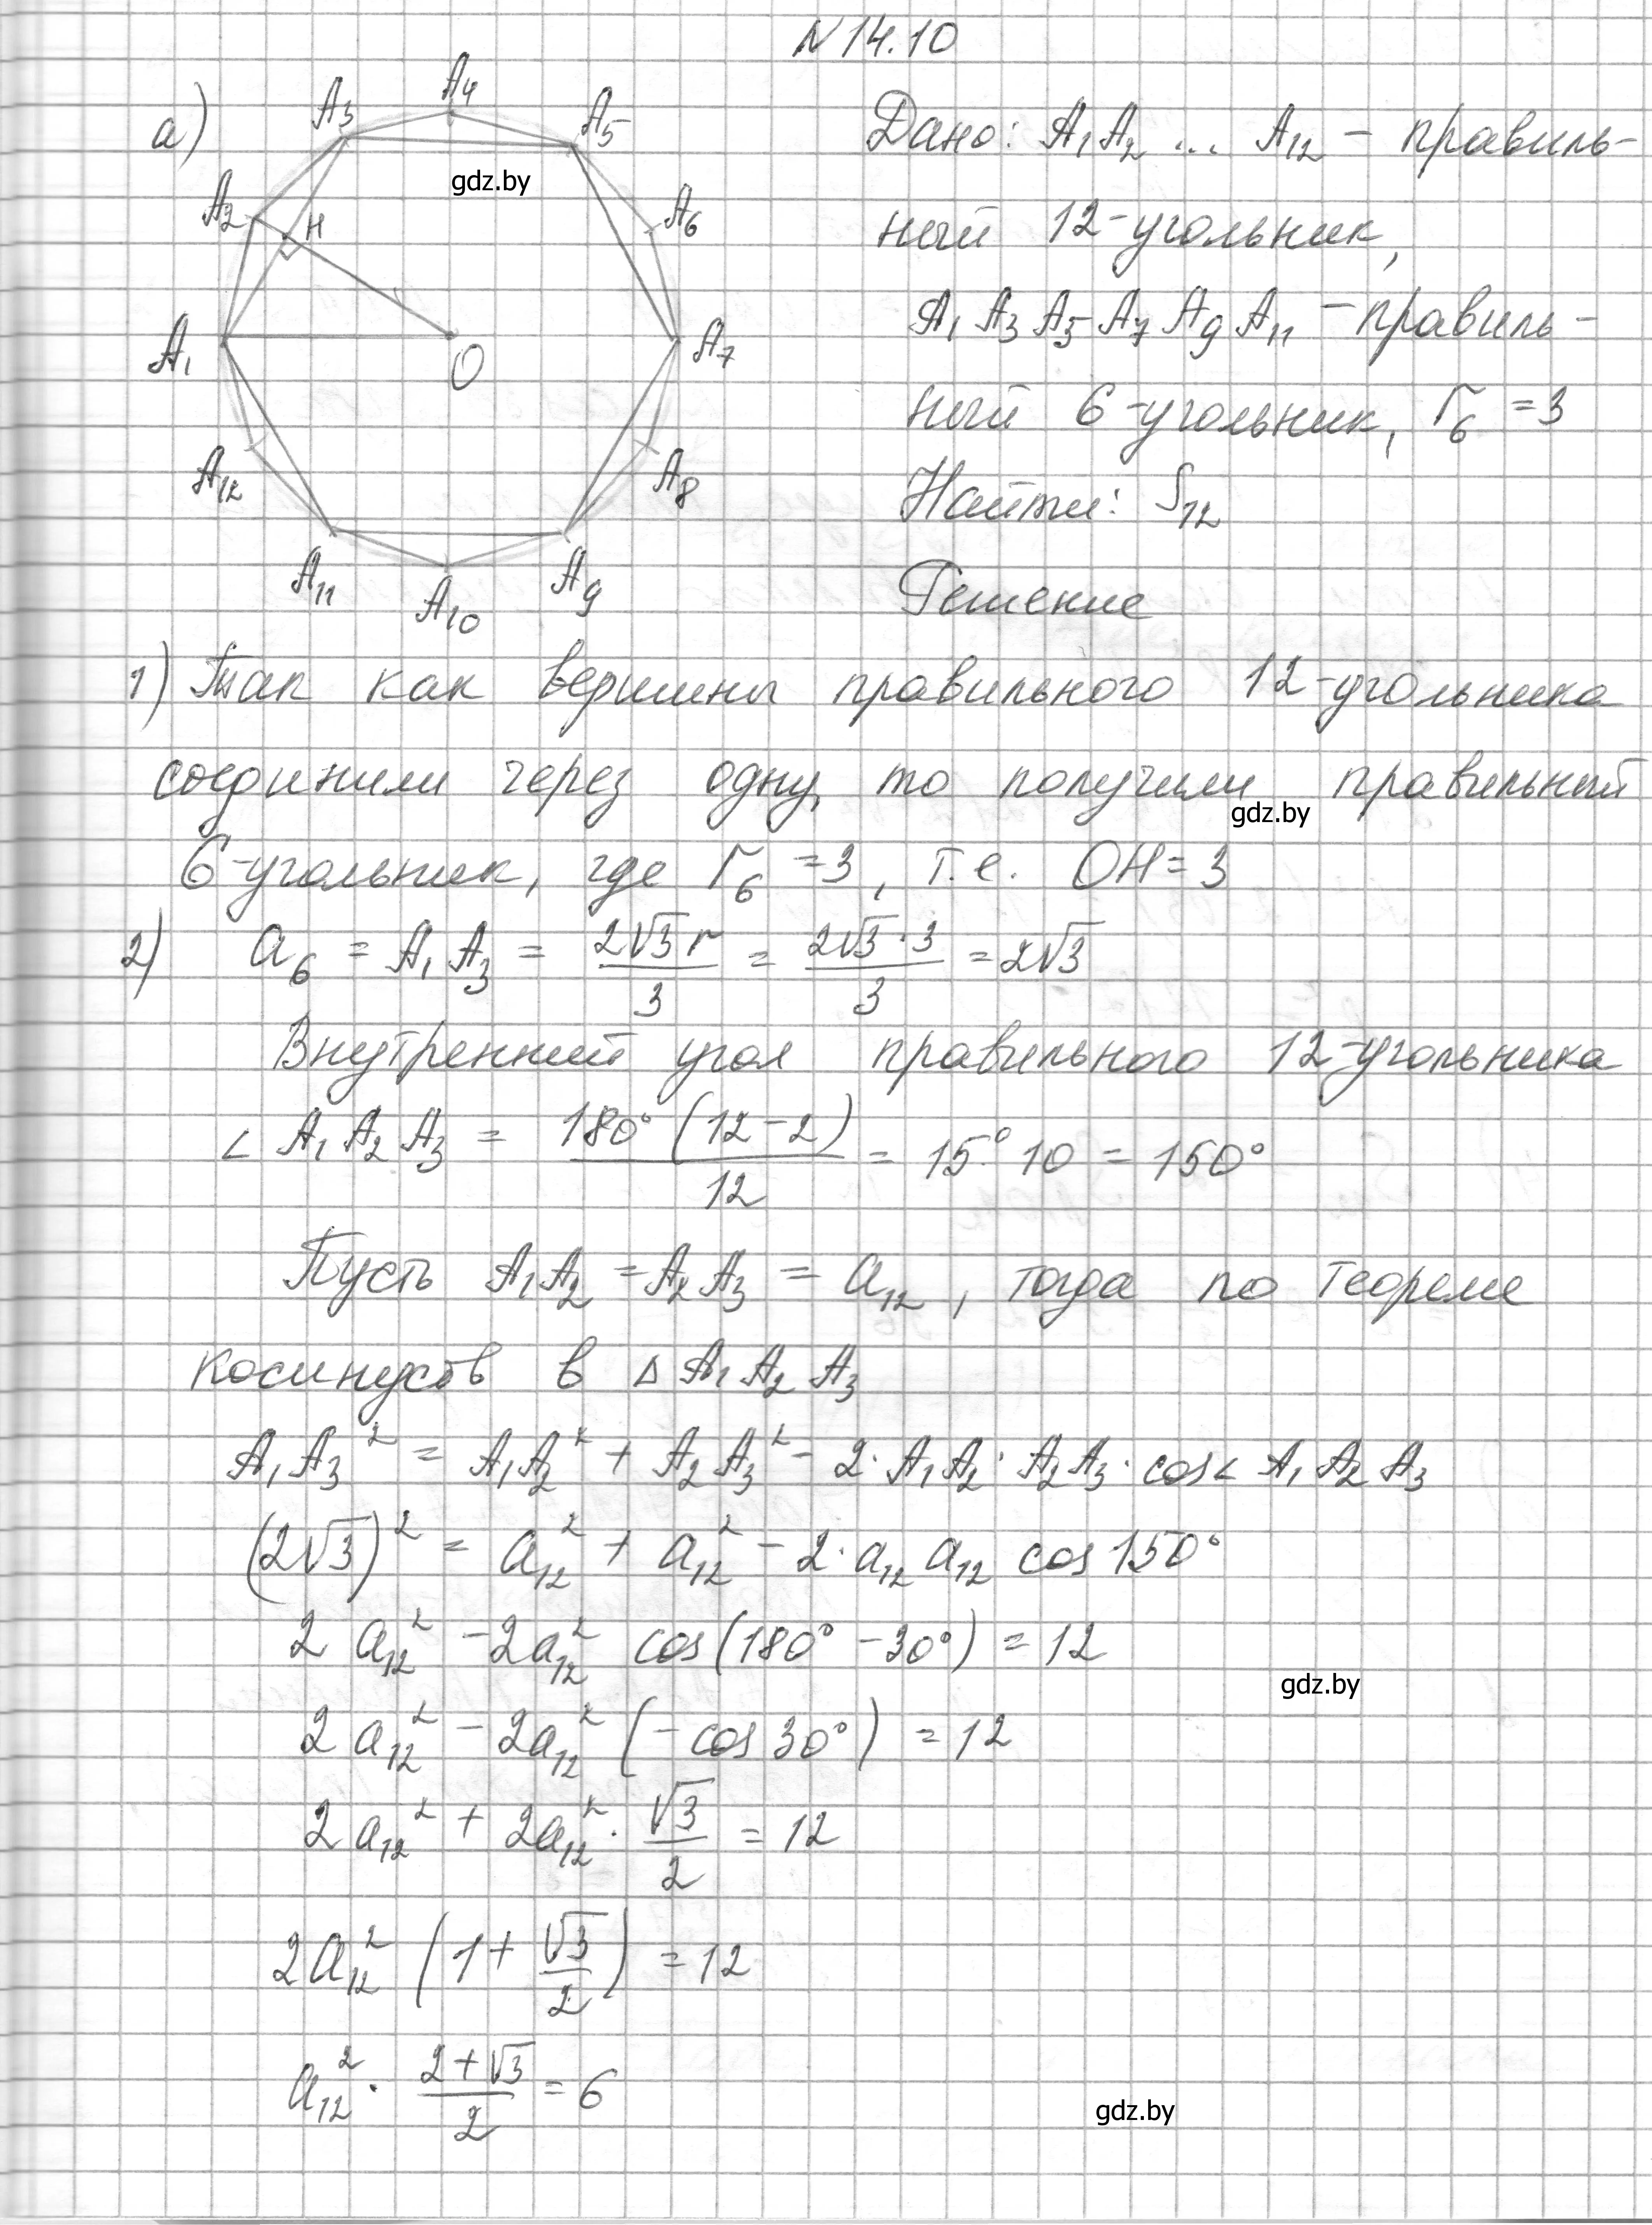 N 14.10
а)
A₁
A₂
A₃
A₄
A₅
A₆
A₇
A₈
A₉
A₁₀
A₁₁
A₁₂
H
O
gdz.by
Дано: A₁A₂ ... A₁₂ – правиль-
ный 12-угольник,
A₁A₃A₅A₇A₉A₁₁ – правиль-
ный 6-угольник, r₆ = 3
Найти: S₁₂
Решение
1) Так как вершины правильного 12-угольника
соединили через одну, то получили правильный
gdz.by
6-угольник, где r₆ = 3, т.е. OH = 3
2) a₆ = A₁A₃ = 2√3 r / 3 = 2√3 · 3 / 3 = 2√3
Внутренний угол правильного 12-угольника
∠ A₁A₂A₃ = 180° (12 - 2) / 12 = 15° · 10 = 150°
Пусть A₁A₂ = A₂A₃ = a₁₂, тогда по теореме
косинусов в Δ A₁A₂A₃
A₁A₃² = A₁A₂² + A₂A₃² - 2 · A₁A₂ · A₂A₃ · cos∠ A₁A₂A₃
(2√3)² = a₁₂² + a₁₂² - 2 · a₁₂ a₁₂ cos 150°
2 a₁₂² - 2a₁₂² cos(180° - 30°) = 12
gdz.by
2 a₁₂² - 2a₁₂² (- cos 30°) = 12
2 a₁₂² + 2a₁₂² · √3 / 2 = 12
2a₁₂² (1 + √3 / 2) = 12
a₁₂² · (2 + √3) / 2 = 6
gdz.by